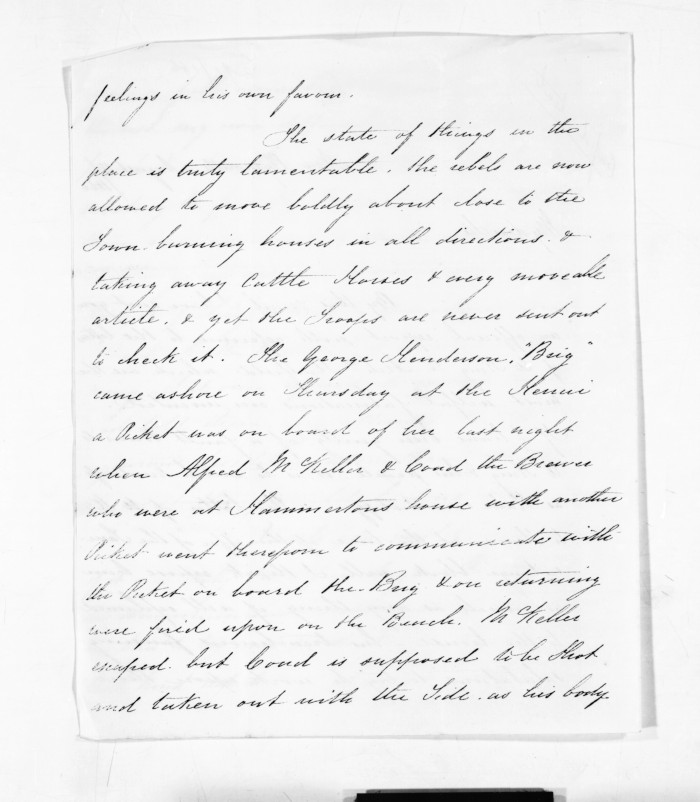 feelings in his own favour.
The state of things in the
place is truly lamentable. the rebels are now
allowed to move boldly about close to the
Town. burning houses in all directions. &
taking away Cattle Horses & every moveable
article. & yet the Troops are never sent out
to check it. The George Henderson, "Brig"
came ashore on Thursday at the Henui
a Picket was on board of her last night
when Alfred McKellar & Coad the Brewer
who were at Hammertons house with another
Picket went therefrom to communicate with
the Picket on board the Brig & on returning
were fired upon on the Beach. McKellar
escaped. but Coad is supposed to be Shot
and taken out with the Tide. as his body